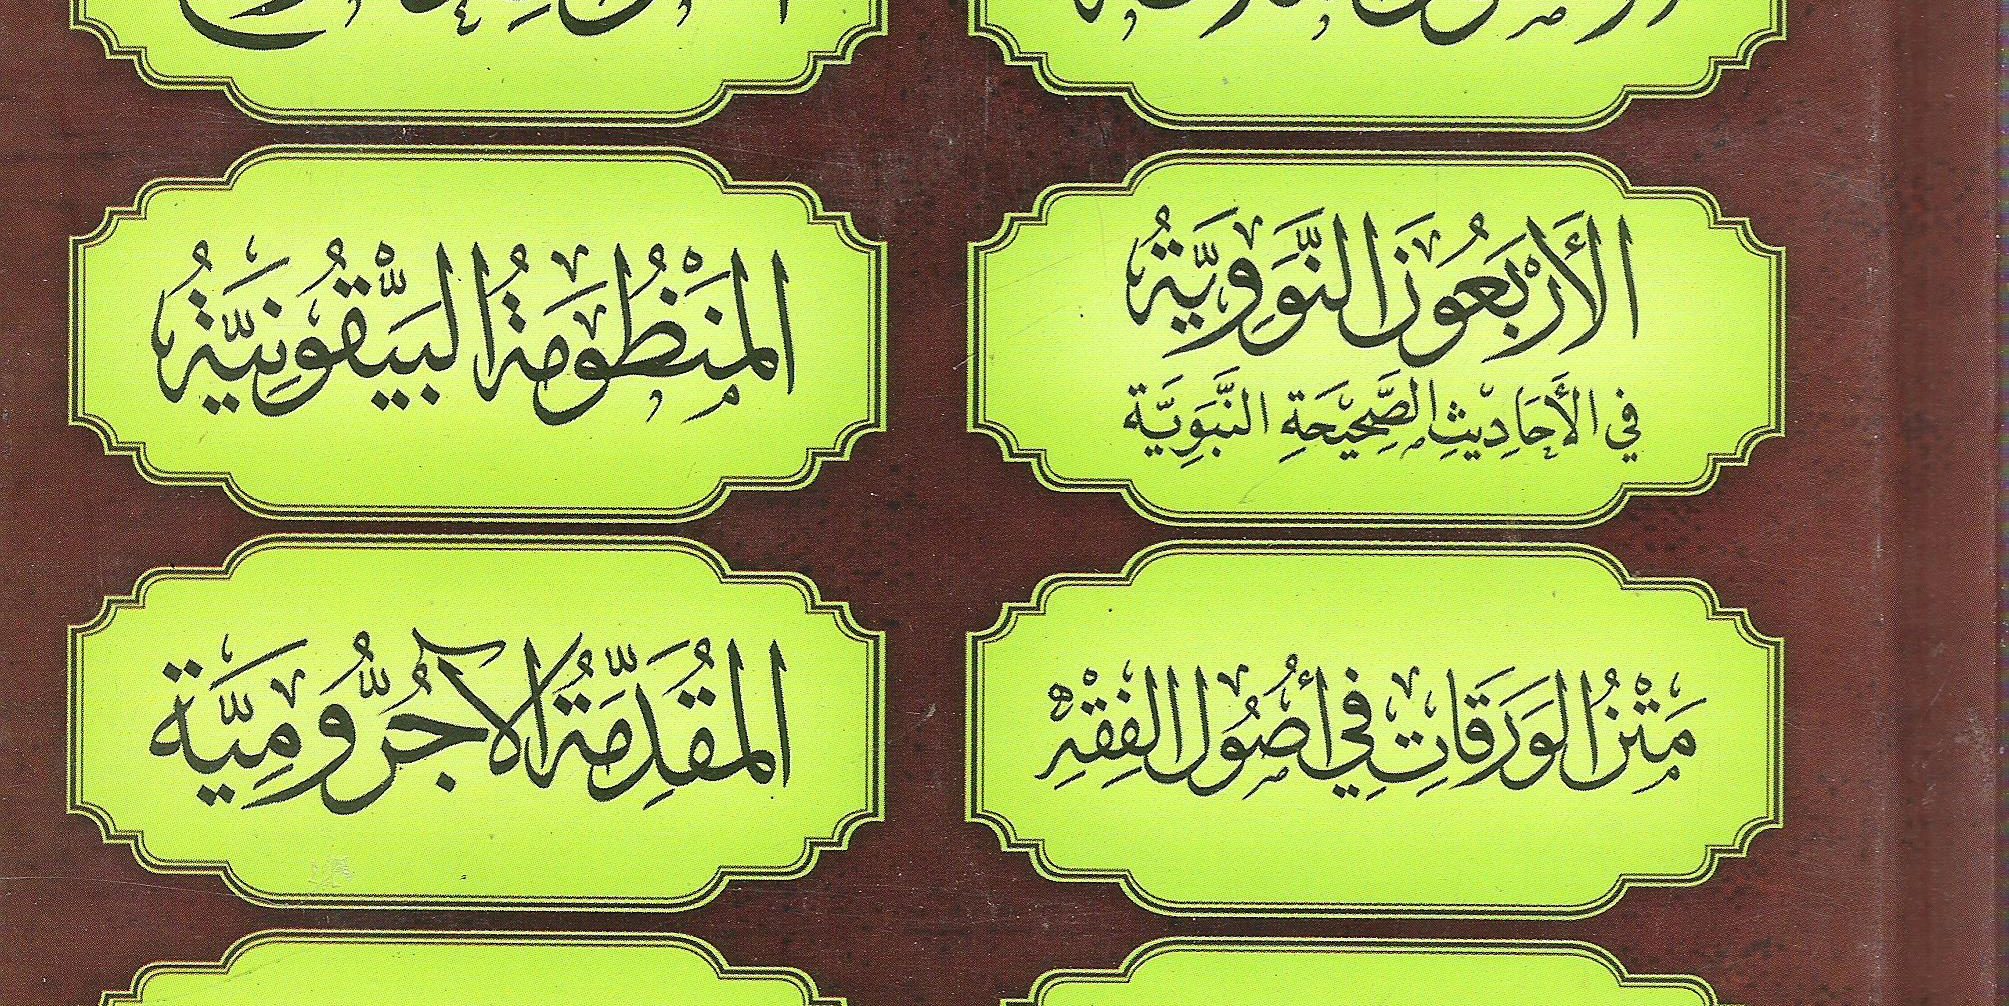 الأَرْبَعُونَ النَّوَوِيَّةُ
في الأَحَادِيثِ الصَّحِيْحَةِ النَّبَوِيَّة
المَنْظُومَةُ البَيْقُونِيَّةُ
مَتْنُ الوَرَقَاتِ فِي أُصُولِ الفِقْهِ
المُقَدِّمَةُ الآجُرُّومِيَّة